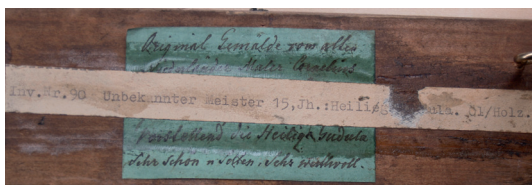 Original Gemälde vom alten
Niederländer Maler
Inv.Nr.90 Unbekannter Meister 15.Jh.: Öl/Holz.
Vorstellend die Heilige Gudula
Sehr schön u selten, Sehr werthvoll.